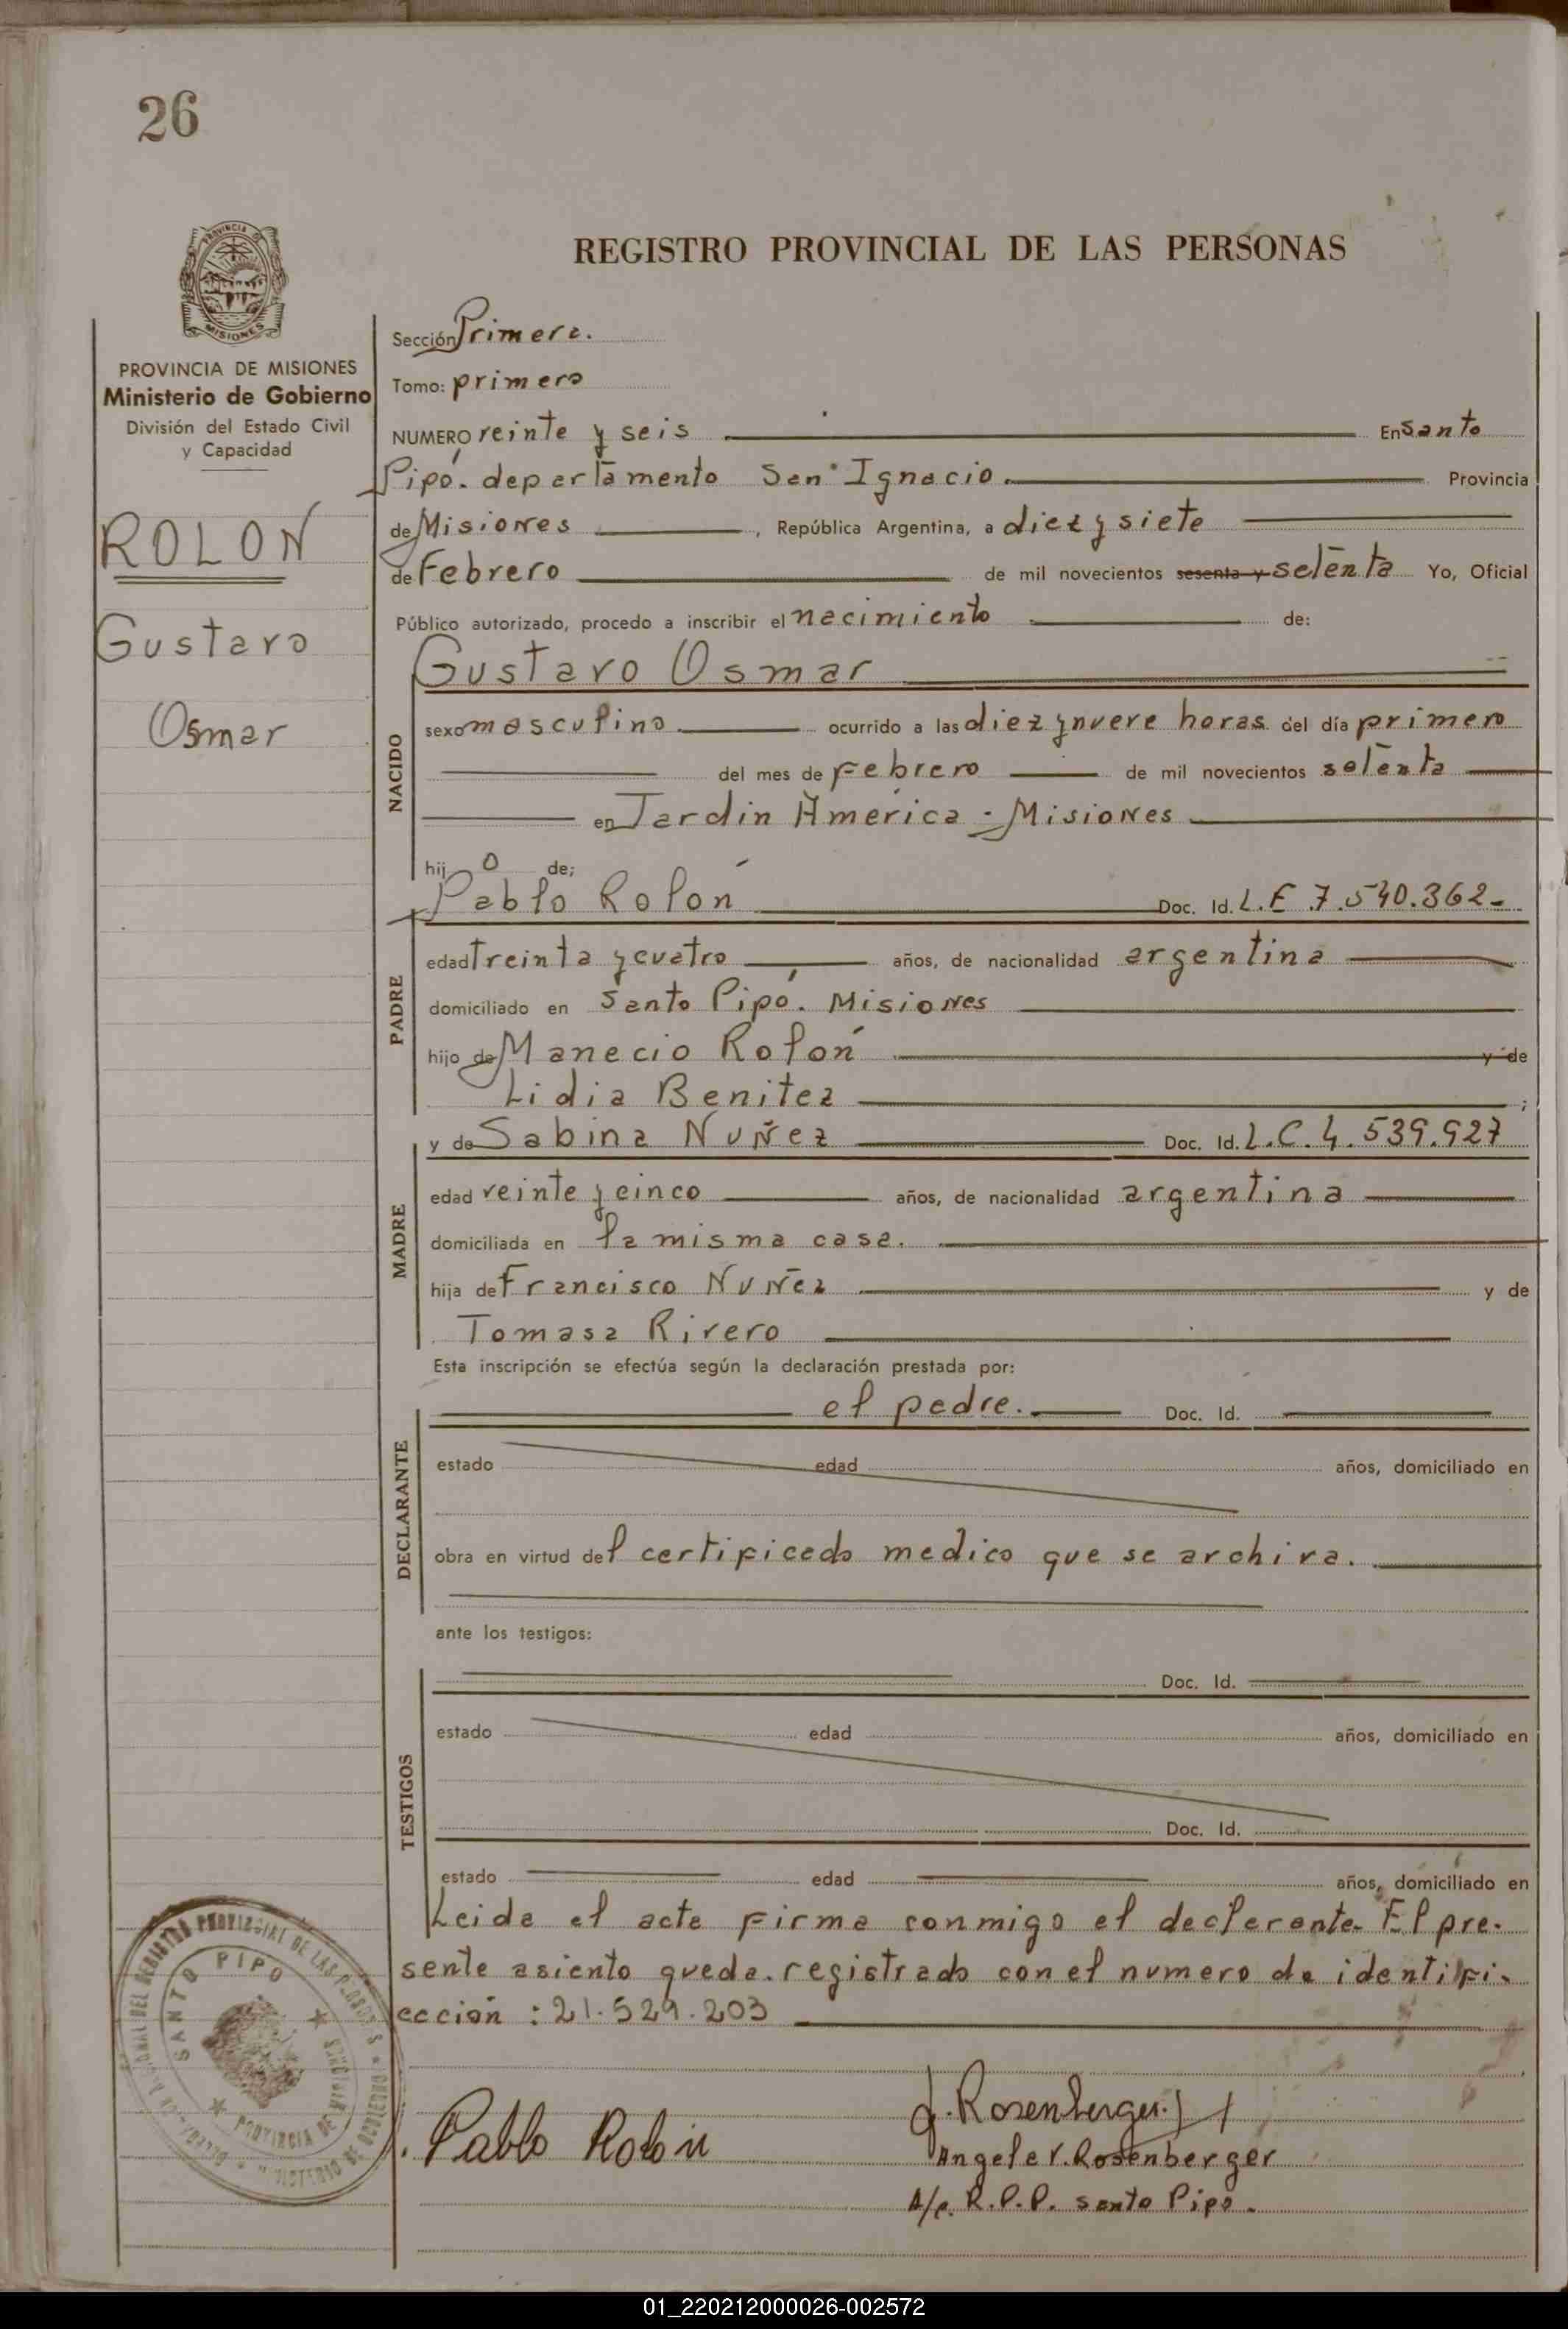 26
REGISTRO PROVINCIAL DE LAS PERSONAS
MISIONES
PROVINCIA DE MISIONES
Ministerio de Gobierno
División del Estado Civil
y Capacidad
ROLON
Gustavo
Osmar
Sección Primera.
Tomo: primero
NUMERO veinte y seis En Santo
Pipó. departamento San Ignacio. Provincia
de Misiones, República Argentina, a diez y siete
de Febrero de mil novecientos sesenta y setenta Yo, Oficial
Público autorizado, procedo a inscribir el nacimiento de:
Gustavo Osmar
NACIDO
sexo masculino ocurrido a las diez y nueve horas del día primero
del mes de Febrero de mil novecientos setenta
en Jardin América - Misiones
hij o de;
Pablo Rolón Doc. Id. L.E 7.540.362-
PADRE
edad treinta y cuatro años, de nacionalidad argentina
domiciliado en Santo Pipó. Misiones
hijo de Manecio Rolón y de
Lidia Benitez ;
y de Sabina Nuñez Doc. Id. L.C. 4.539.927
MADRE
edad veinte y cinco años, de nacionalidad argentina
domiciliada en la misma casa.
hija de Francisco Nuñez y de
Tomasa Rivero
Esta inscripción se efectúa según la declaración prestada por:
el padre. Doc. Id.
DECLARANTE
estado edad años, domiciliado en
obra en virtud del certificado medico que se archiva.
ante los testigos:
Doc. Id.
TESTIGOS
estado edad años, domiciliado en
Doc. Id.
estado edad años, domiciliado en
Leida el acta firma conmigo el declarante. El pre-
sente asiento queda registrado con el numero de identifi-
cación : 21.529.203
SANTO PIPO
PROVINCIA DE MISIONES
Pablo Rolón
A. Rosenberger
Angela V. Rosenberger
A/c. R.P.P. Santo Pipó.
01_220212000026-002572